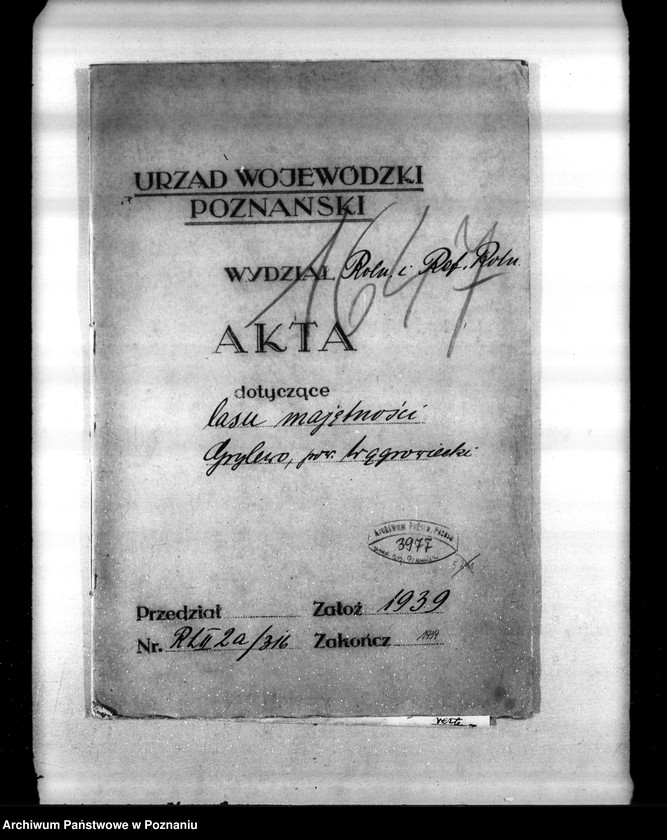 URZĄD WOJEWÓDZKI
POZNAŃSKI
1647
WYDZIAŁ Roln. i Ref. Roln.
AKTA
dotyczące
lasu majętności
Grylewo, pow. wągrowiecki
Archiwum Państw. Poznań
3977
Przedział Założ 1939
Nr. RLII 2a/316 Zakończ 1939
Archiwum Państwowe w Poznaniu